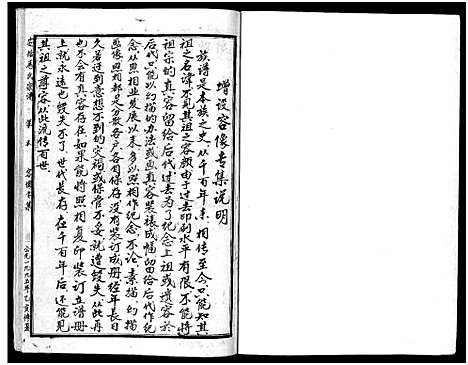 增设容像专集说明
族谱是本族之史,从千百年来,相传至今,只能知其
祖之名讳不见其祖之容颜由于过去印刷水平有限,不能
祖宗的真容留给后代过去为了纪念上祖或遗容於
后代只能以幻描的办法或画真容装裱成幅留给后代作纪
念从照相业发展以来多以照相作纪念,不论,素描,幻描
画像照相都是分散各户各自保存没有装订成册经年长日
久若遇到意想不到的灾殃或保管不妥就遭毁失从此再
也不会有真容存在如果能将照相复印装订立谱册
上就永远也毁失不了,世代长存,在千百年后,还能见
其祖之尊容从此流传百世